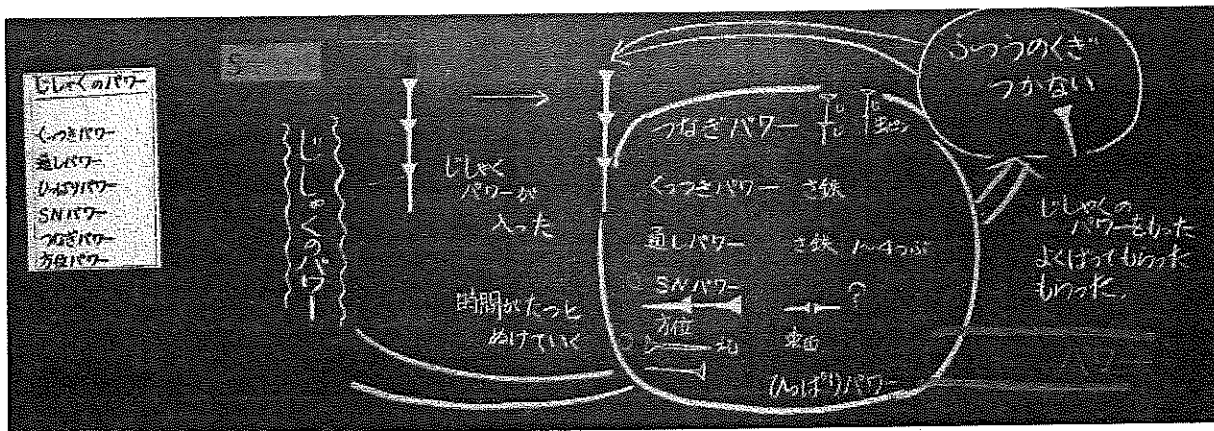 じしゃくのパワー
くっつきパワー
通しパワー
ひっぱりパワー
SNパワー
つなぎパワー
方位パワー
S
じしゃくのパワー
じしゃく
パワーが
入った
時間がたつと
ぬけていく
つなぎパワー
くっつきパワー さ鉄
通しパワー さ鉄 1〜4つぶ
SNパワー
?
方位
北
東西
(ひっぱり)パワー
ふつうのくぎ
つかない
じしゃくの
パワーをもった
よくばってもらった
もらった